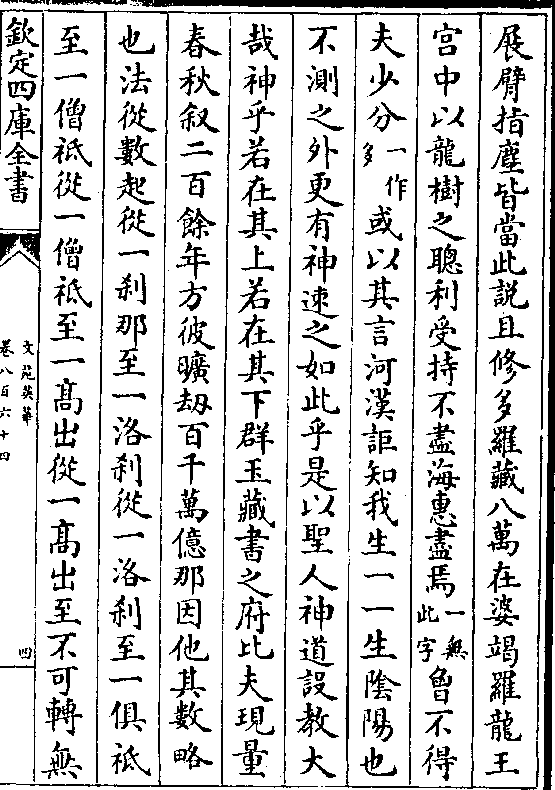 展臂指塵皆當此説且修多羅藏八萬在婆竭羅龍王
宫中以龍樹之聰利受持不盡海惠盡焉一無此字曾不得
夫少分一作多或以其言河漢詎知我生一一生陰陽也
不測之外更有神速之如此乎是以聖人神道設教大
哉神乎若在其上若在其下群玉藏書之府比夫現量
春秋叙二百餘年方彼曠刼百千萬億那因他其數略
也法從數起從一刹那至一洛刹從一洛刹至一俱祇
至一僧祇從一僧祇至一髙出從一髙出至不可轉無
欽定四庫全書
文苑英華
卷八百六十四
四